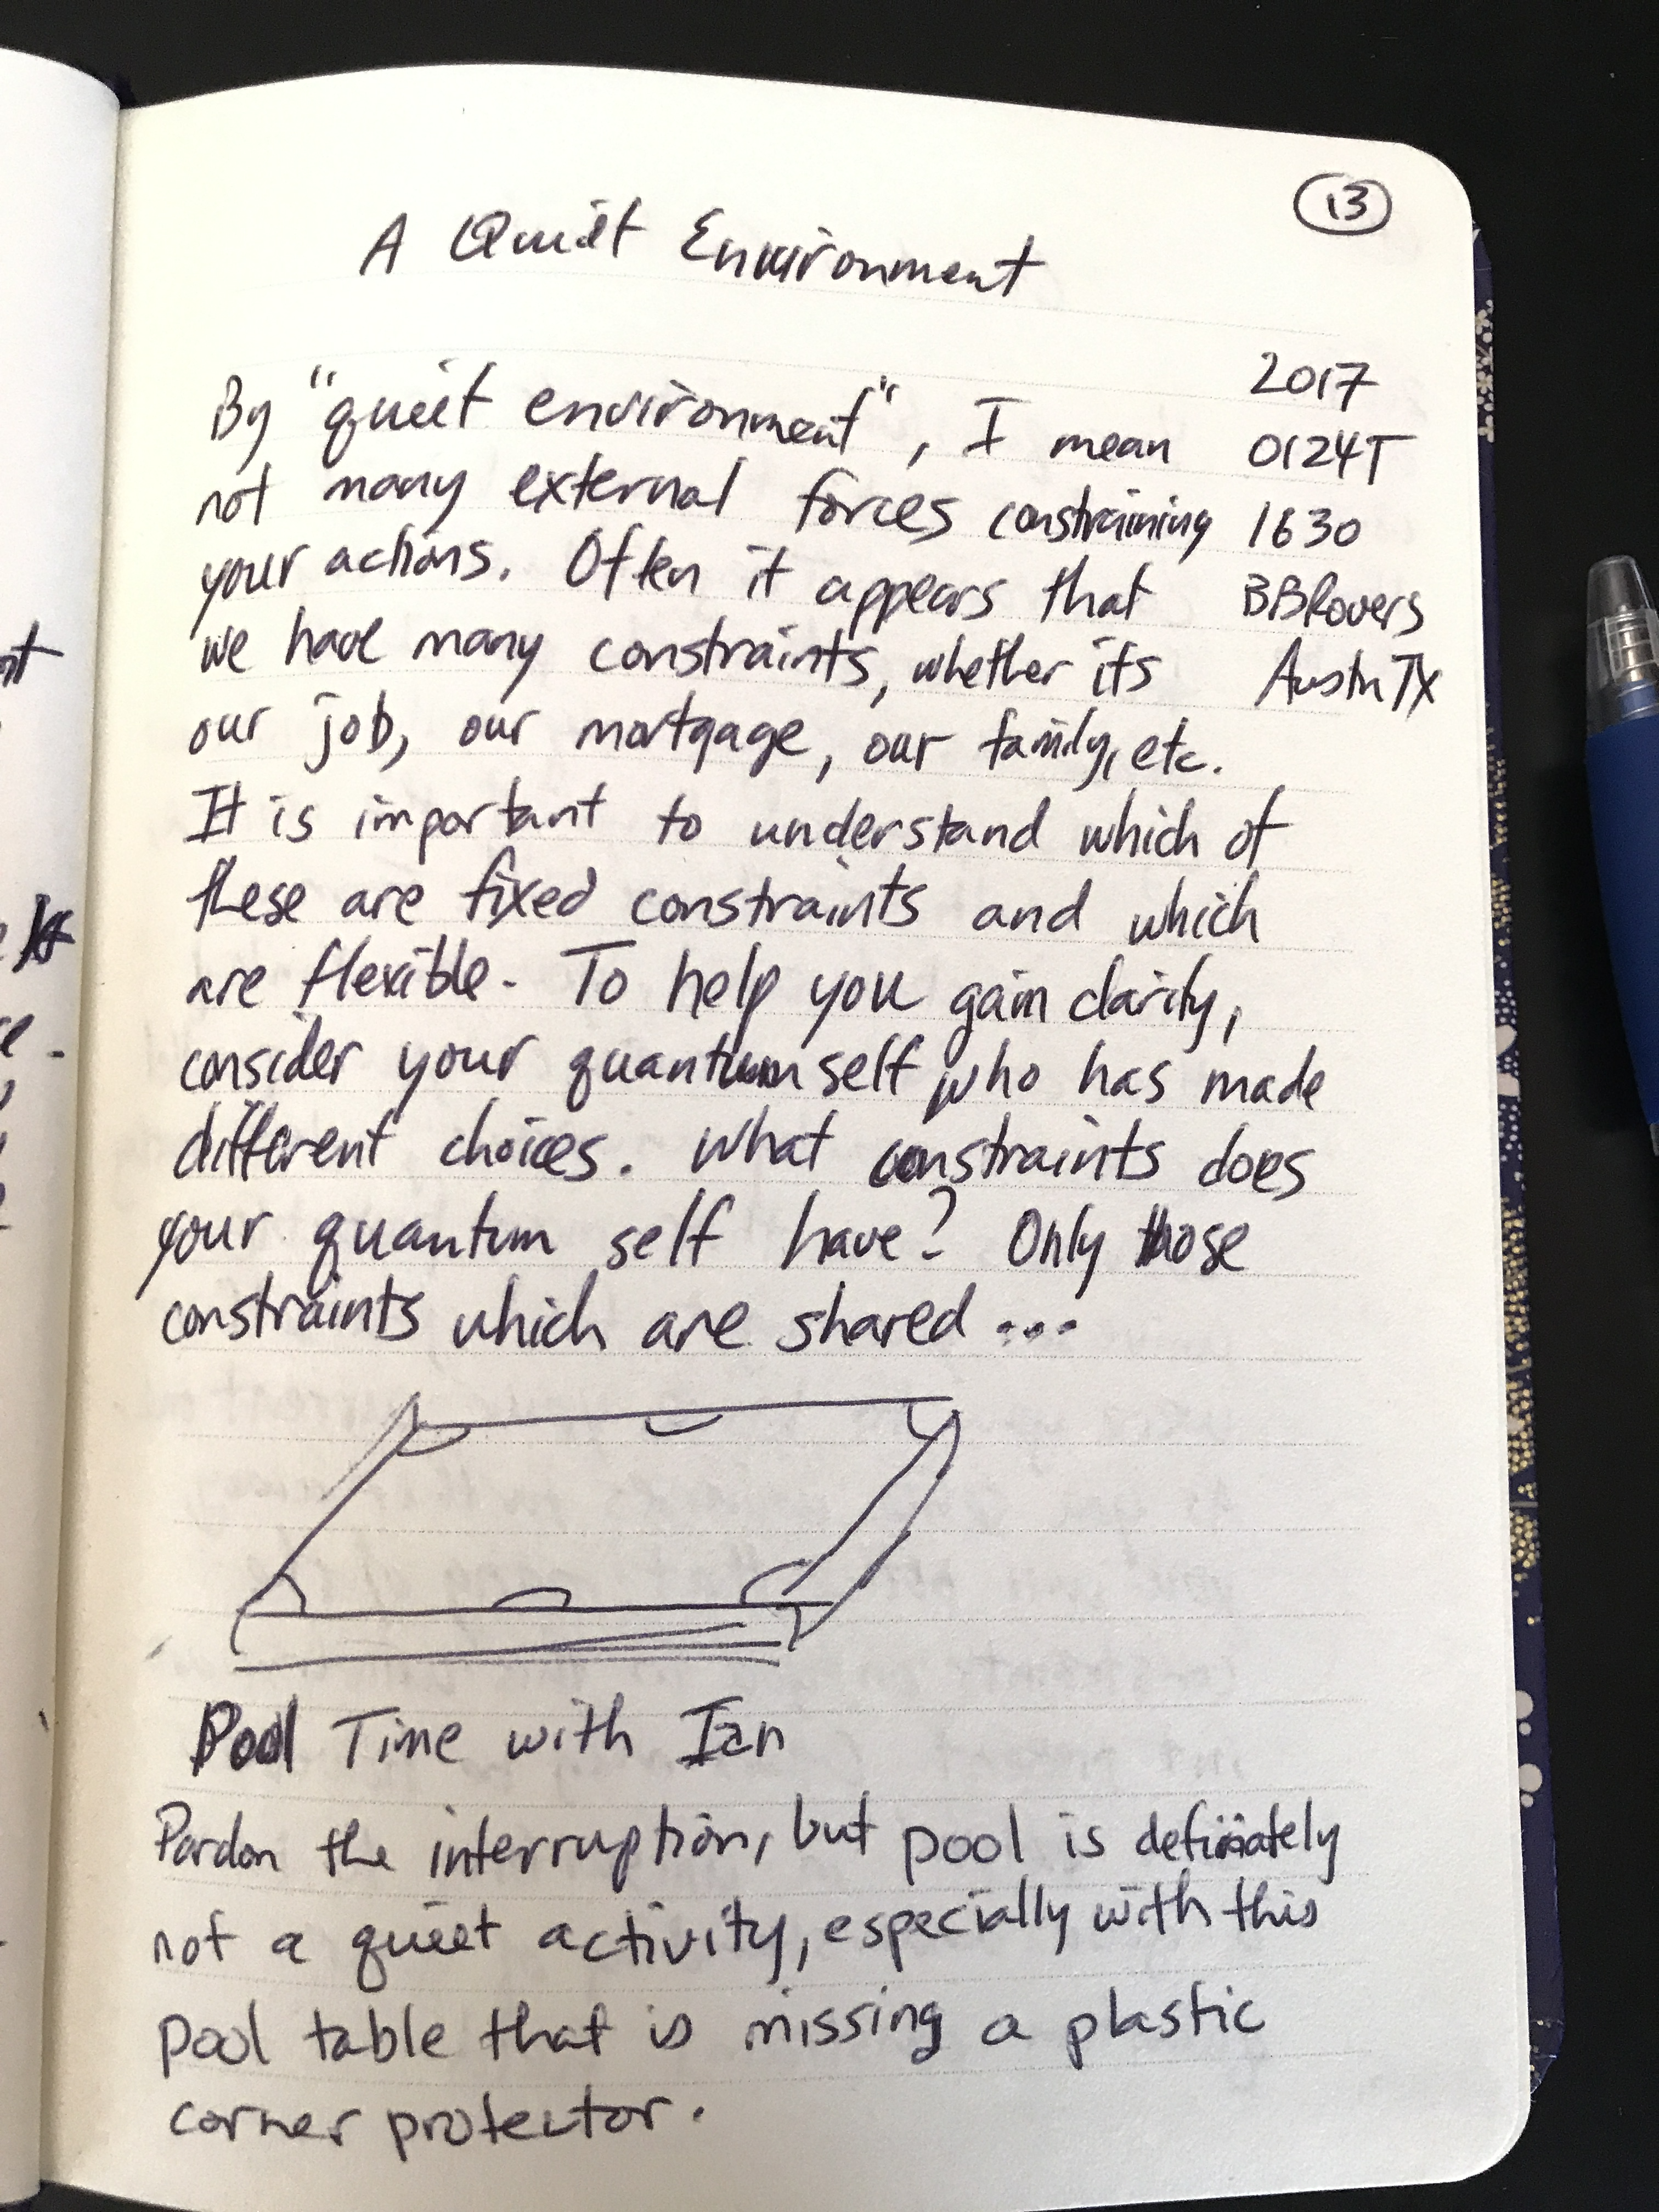 13
A Quiet Environment
2017
By "quiet environment", I mean
0124T
not many external forces constraining
1630
your actions. Often it appears that
BBRovers
we have many constraints, whether its
Austin TX
our job, our mortgage, our family, etc.
It is important to understand which of
these are fixed constraints and which
are flexible. To help you gain clarity,
consider your quantum self who has made
different choices. What constraints does
your quantum self have? Only those
constraints which are shared...
Pool Time with Ian
Pardon the interruption, but pool is definately
not a quiet activity, especially with this
pool table that is missing a plastic
corner protector.